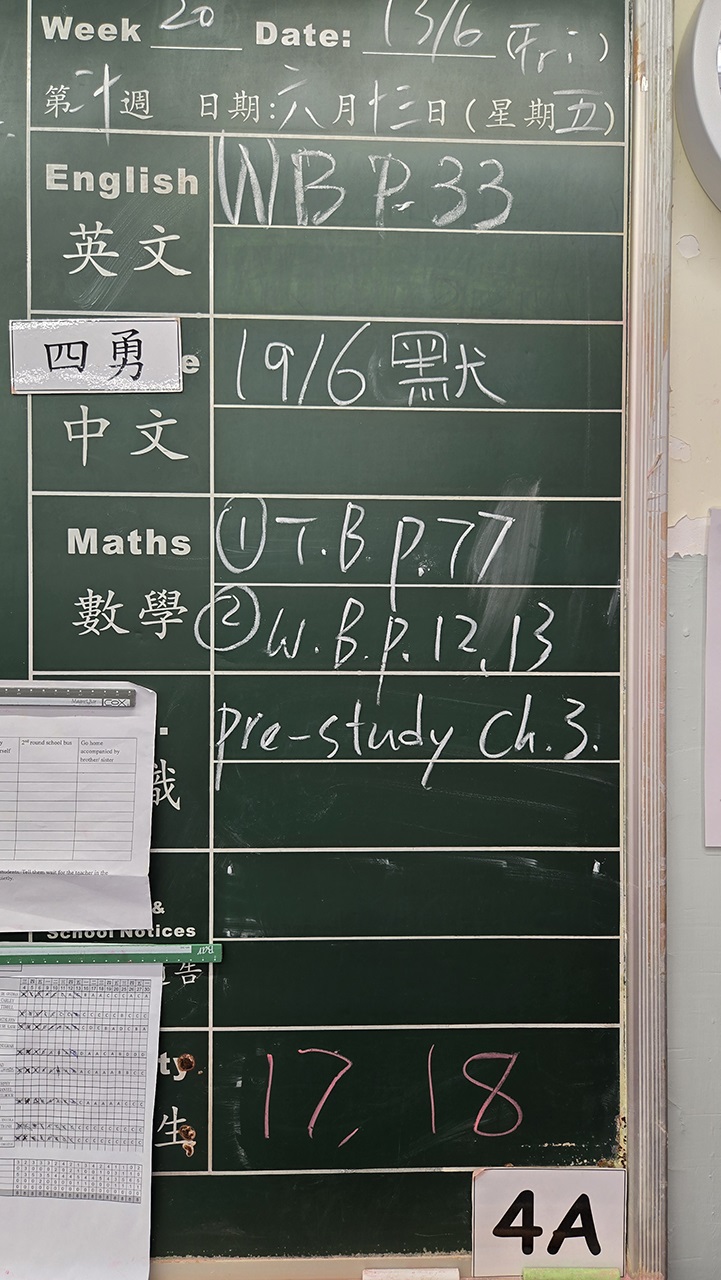 Week 20 Date: 13/6 (Fri)
第二十週 日期:六月十三日(星期五)
English WB P.33
英文
四勇 e 19/6 默
中文
Maths ① T.B p.77
數學 ② W.B.p.12,13
pre-study Ch.3.
識
2nd round school bus
Go home accompanied by brother/ sister
&
School Notices
告
ty 17, 18
生
4A